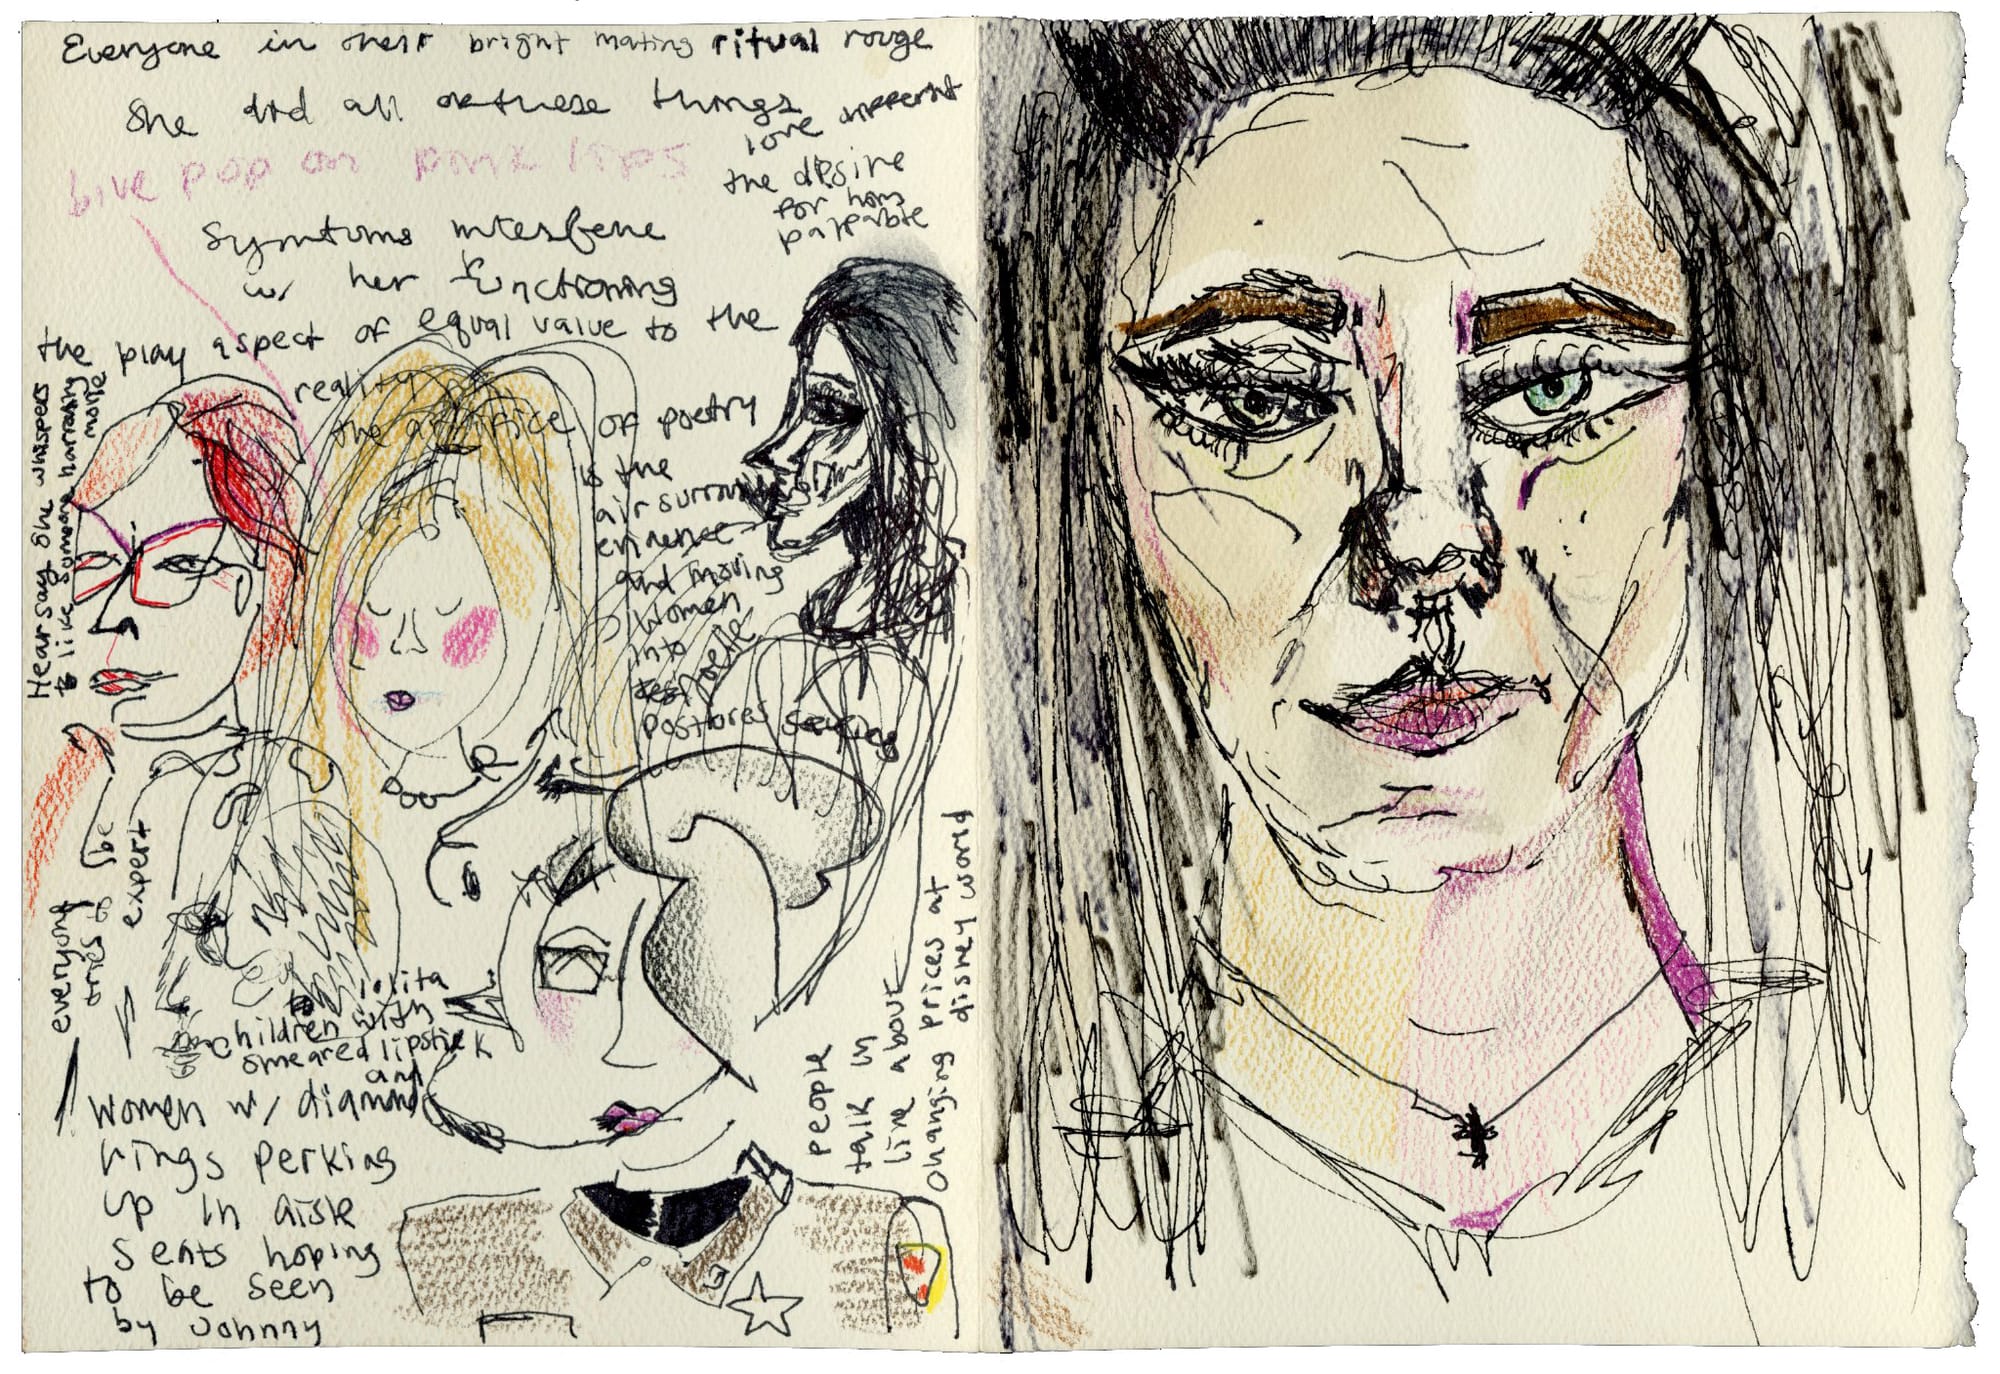 Everyone in their bright mating ritual rouge
She did all of these things
live pop on pink lips
love apparent
the desire
for
palpable
Symtoms interfere
w/ her functioning
the play aspect of equal value to the
reality
the artifice of poetry
is the
air surrounding
evidence
and moving
women
into
postures
Hearsay she whispers
to like someone narrating
more
everyone
tries to be
expert
lolita
children with
smeared lipstick
and
women w/ diamond
rings perking
up in aisle
seats hoping
to be seen
by Johnny
people
talk in
line about
changing prices at
disney world